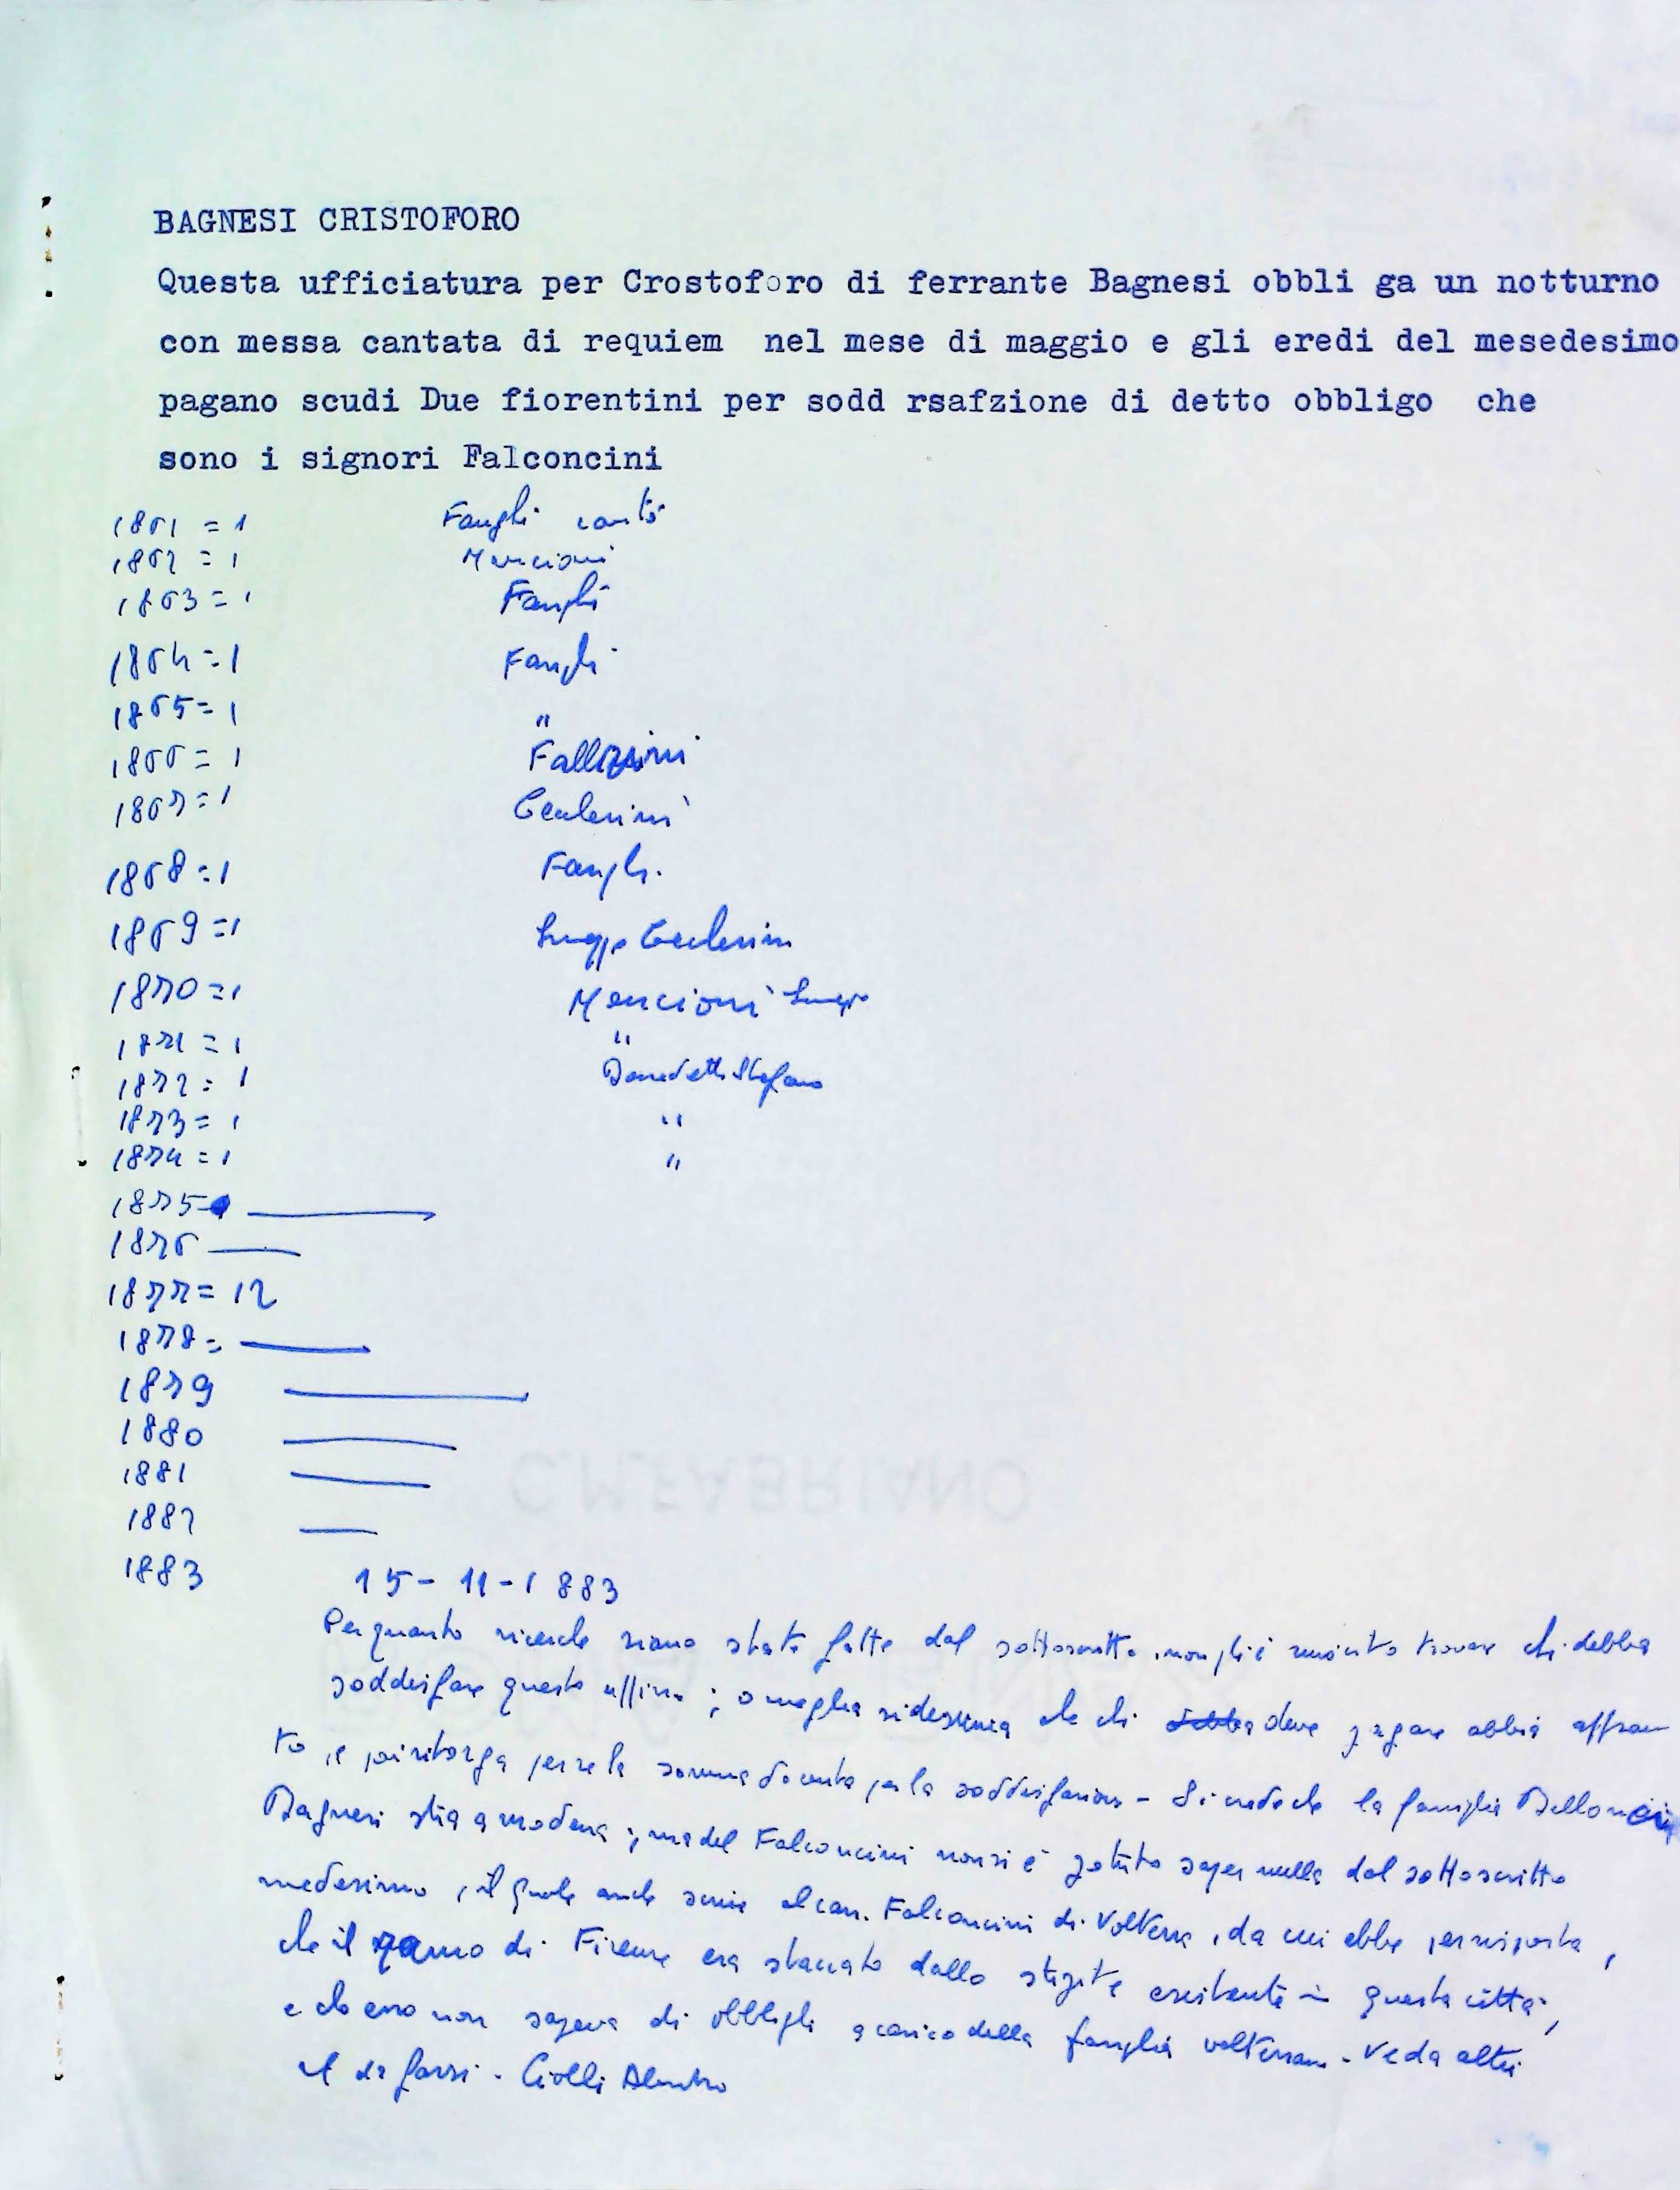 BAGNESI CRISTOFORO
Questa ufficiatura per Crostoforo di ferrante Bagnesi obbli ga un notturno
con messa cantata di requiem nel mese di maggio e gli eredi del mesedesimo
pagano scudi Due fiorentini per sodd rsafzione di detto obbligo che
sono i signori Falconcini
1861 = 1 Fanghi cantò
1862 = 1 Mencioni
1863 = 1 Fanghi
1864 = 1 Fanghi
1865 = 1 "
1866 = 1
1867 = 1
1868 = 1 Fanghi
1869 = 1
1870 = 1 Mencioni
1871 = 1 "
1872 = 1 Benedetti Stefano
1873 = 1 "
1874 = 1 "
1875
1876
1877 = 12
1878 =
1879
1880
1881
1882
1883 15-11-1883
Per quanto ricerche siano state fatte dal sottoscritto, non gli è riuscito trovare chi debba
soddisfare questo ; o meglio che chi debba deve pagare abbia
to e la somma per la soddisfazione - Si crede che la famiglia
Bagnesi stia a modena ; ma del Falconcini non si è potuto saper nulla dal sottoscritto
medesimo, il quale anche al can. Falconcini di Volterra, da cui ebbe per risposta,
che il ramo di Firenze era staccato dallo stipite esistente in questa città,
e che esso non sapeva di obblighi a carico della famiglia volterrana - Veda altri
il da farsi - Ciolli
C.M.FABRIANO